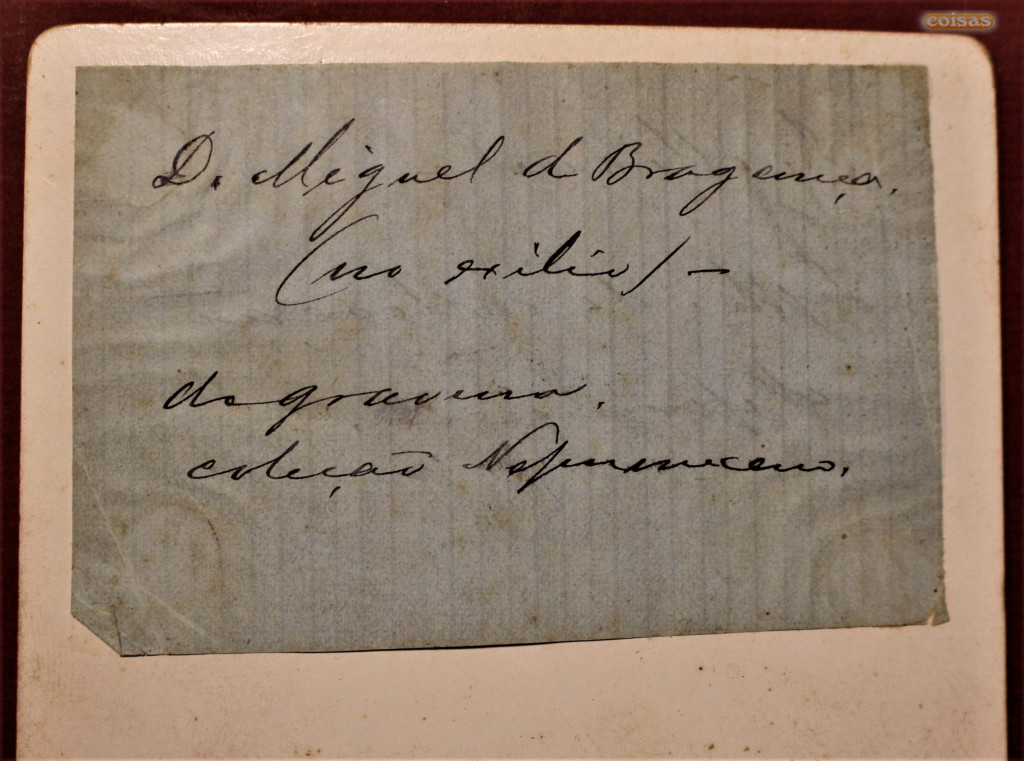 coisas
D. Miguel d Bragança.
(no exilio) –
de gravura.
coleção Nepumuceno.